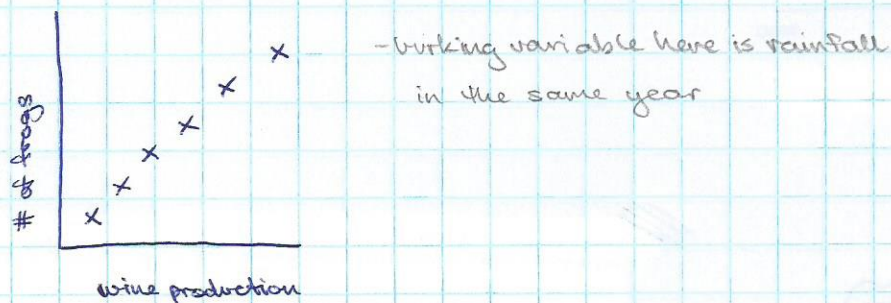 # of frogs
wine production
-lurking variable here is rainfall
in the same year